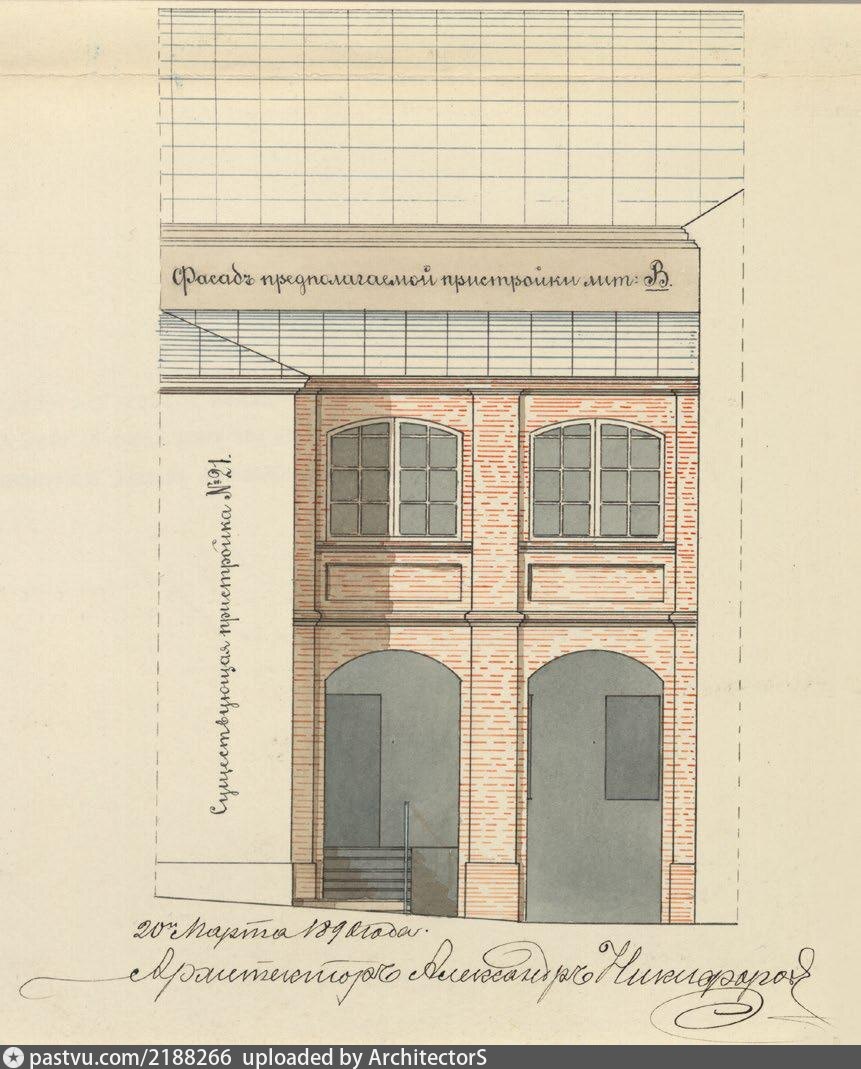 Фасадъ предполагаемой пристройки лит: В.
Существующая пристройка №21.
20го Марта 1890 года.
Архитекторъ Александръ Никифоровъ
pastvu.com/2188266 uploaded by ArchitectorS